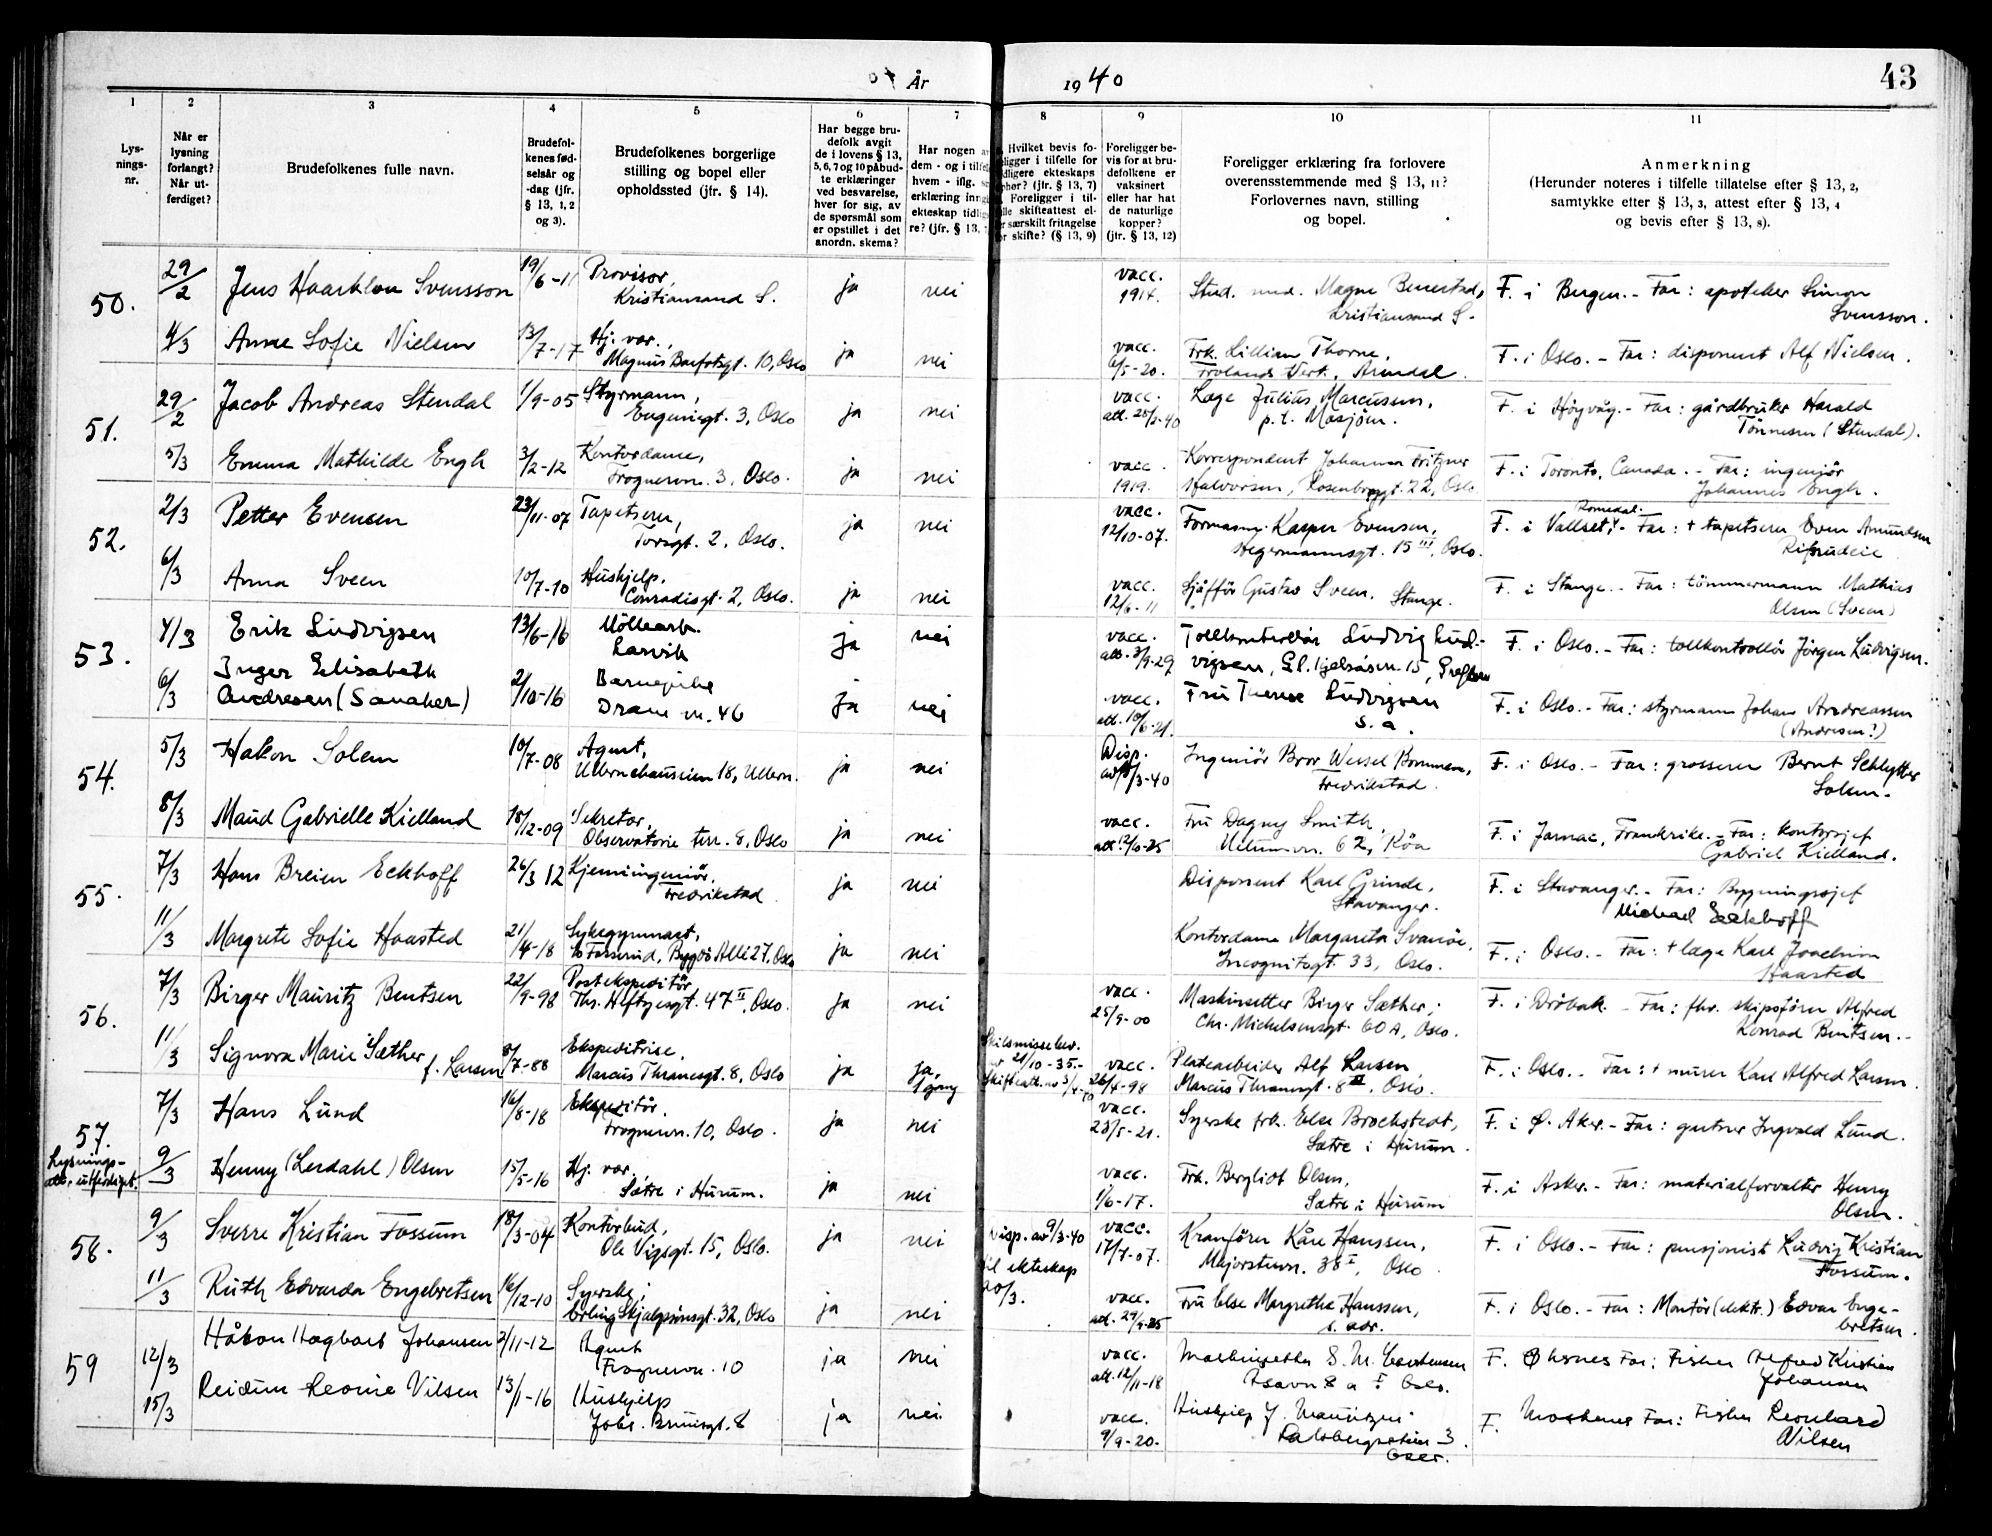 År 1940
43
1 2 3 4 5 6 7 8 9 10 11
Lys-
nings-
nr.
Når er
lysning
forlangt?
Når ut-
ferdiget?
Brudefolkenes fulle navn.
Brudefol-
kenes fød-
selsår og
-dag (jfr.
§ 13, 1, 2
og 3).
Brudefolkenes borgerlige
stilling og bopel eller
opholdssted (jfr. § 14).
Har begge bru-
defolk avgit
de i lovens § 13,
5, 6, 7 og 10 påbud-
te erklæringer
ved besvarelse,
hver for sig, av
de spørsmål som
er opstillet i det
anordn. skema?
Har nogen
dem - og i
hvem - iflg.
erklæring
ekteskap
re? (jfr. § 13,
Hvilket bevis fo-
ligger i tilfelle for
ekteskaps
(jfr. § 13, 7)
Foreligger i til-
skifteattest el-
særskilt fritagelse
skifte? (§ 13, 9)
Foreligger be-
vis for at bru-
defolkene er
vaksinert
eller har hat
de naturlige
kopper?
(jfr. § 13, 12)
Foreligger erklæring fra forlovere
overensstemmende med § 13, 11?
Forlovernes navn, stilling
og bopel.
Anmerkning
(Herunder noteres i tilfelle tillatelse efter § 13, 2,
samtykke efter § 13, 3, attest efter § 13, 4
og bevis efter § 13, 8).
50.
29/2 Jens Haarklou Svensson 19/6-11 Provisor,
Kristiansand S. ja nei vacc.
1914. Stud. med. Magne
Kristiansand S. F. i Bergen. - Far: apoteker Simon
Svensson.
4/3 Anne Sofie Nielsen 13/7-17 Hj. vær.,
Magnus Barfotsgt. 10, Oslo ja nei vacc.
6/5-20. Frk. Lillian Thorne,
Frolands Verk, Arendal. F. i Oslo. - Far: disponent Alf Nielsen.
51.
29/2 Jacob Andreas Stendal 1/9-05 Styrmann,
Eugeniesgt. 3, Oslo ja nei vacc.
Læge Julius Marcussen,
p.t. Mosjøen. F. i Høyvåg. - Far: gårdbruker Harald
Tønnesen (Stendal).
5/3 Emma Mathilde Engh 3/2-12 Kontordame,
Frognervn. 3, Oslo. ja nei vacc.
1919. Korrespondent Johanna Fritzner
Halvorsen, Rosenborggt. 22, Oslo F. i Toronto, Canada. - Far: ingeniør
Johannes Engh.
52.
2/3 Petter Evensen 23/11-07 Tapetserer,
Torsgt. 2, Oslo. ja nei vacc.
12/10-07. Kasper Evensen,
Hegermannsgt. 15 III, Oslo. Romedal.
F. i Vallset, - Far: + tapetserer Even Amundsen
6/3 Anna Sveen 10/7-10 Hushjelp.
Conradisgt. 2, Oslo. ja nei vacc.
12/6-11 Sjåffør Gustav Sveen. Stange. F. i Stange. - Far: tømmermann Mathias
Olsen (Sveen)
53.
4/3 Erik Ludvigsen 13/6-16 Møllearb.
Larvik ja nei vacc.
att. 3/9-29 Tollkontrollør Ludvig Lud-
vigsen, Gl. Kjelsåsvn. 15, Grefsen F. i Oslo. - Far: tollkontrollør Jørgen Ludvigsen.
6/3 Inger Elisabeth
Andresen (Sanaker) 2/10-16 Barnepleie
Dram. vn. 46 ja nei vacc.
Fru Therese Ludvigsen
s. a. F. i Oslo. - Far: styrmann Johan Andreassen
(Andresen!)
54.
5/3 Håkon Solem 10/7-08 Agent,
Ullernchausseen 18, Ullern. ja nei Disp.
Ingeniør Bror Wessel Bommen,
Fredrikstad. F. i Oslo. - Far: grosserer Bernt Schlytter
Solem.
8/3 Maud Gabrielle Kielland 18/12-09 Sekretær,
Observatorie terr. 8, Oslo ja nei vacc.
Fru Dagny Smith,
62, Röa F. i Jarnac, Frankrike. - Far: kontorsjef
Gabriel Kielland.
55.
7/3 Hans Breien Eckhoff 26/3 12 Kjemiingeniør,
Fredrikstad ja nei Disponent Karl Grinde,
Stavanger. F. i Stavanger. - Far: Bygningssjef
Michael Eckhoff
11/3 Margrete Sofie Haasted 21/4-18 Sykegymnast,
Bygdö Allé 27, Oslo ja nei Kontordame Margareta Svanøe,
Incognitogt. 33, Oslo. F. i Oslo. - Far: + læge Karl Joachim
Haasted
56.
7/3 Birger Mauritz Bentsen 22/9-98 Postekspeditør,
Ths. Heftyesgt. 47 II, Oslo. ja nei vacc.
25/9-00 Maskinsetter Birger Sæther,
Chr. Michelsensgt. 60 A, Oslo. F. i Drøbak. - Far: fhv. skipsfører Alfred
Konrad Bentsen.
11/3 Signora Marie Sæther
f. Larsen 8/7-88 Ekspeditrise,
Marcus Thranesgt. 8, Oslo ja ja,
1 gang Skilsmissebev.
21/10-35.-
Skifteatt. av 3/4-40 vacc.
26/4-98 Platearbeider Alf Larsen
Marcus Thranesgt. 8 III, Oslo. F. i Oslo. - Far: + murer Karl Alfred Larsen.
57.
Lysnings-
att. utferdiget.
7/3 Hans Lund 16/8-18 Ekspeditør,
Frognervn. 10, Oslo. ja nei vacc.
23/5-21. Syerske frk. Else Brochstedt,
Sætre i Hurum. F. i Ø. Aker. - Far: gartner Ingvald Lund.
9/3 Henny (Lerdahl) Olsen 15/5-16 Hj. vær.
Sætre i Hurum. ja nei vacc.
1/6-17. Frk. Bergliot Olsen,
Sætre i Hurum F. i Asker. - Far: materialforvalter Henry
Olsen.
58.
9/3 Sverre Kristian Fossum 18/3-04 Kontorbud,
Ole Vigsgt. 15, Oslo. ja nei Disp. av 9/3-40
til ekteskap
20/3. vacc.
17/7-07. Kranfører Kåre Hanssen,
Majorstuvn. 38 I, Oslo F. i Oslo. - Far: pensjonist Ludvig Kristian
Fossum.
11/3 Ruth Edvarda Engebretsen 16/12-10 Syerske,
Erling Skjalgssonsgt. 32, Oslo ja nei vacc.
Fru Else Margrethe Hanssen,
s. adr. F. i Oslo. - Far: Montør (elektr.) Edvar Enge-
bretsen.
59
12/3 Håkon Hagbart Johansen 2/11-12 Agent
Frognervn. 10 ja nei vacc.
att. 12/11-18 Maskinsetter S. M.
Oslo. F. Øksnes Far: Fisker Alfred Kristian
Johansen
15/3 Reidun Leonie Nilsen 13/1-16 Hushjelp
Johs. Bruunsgt. 8 ja nei. vacc.
9/9-20. Hushjelp J.
3
Oslo. F. Moskenes Far: Fisker Leonhard
Nilsen